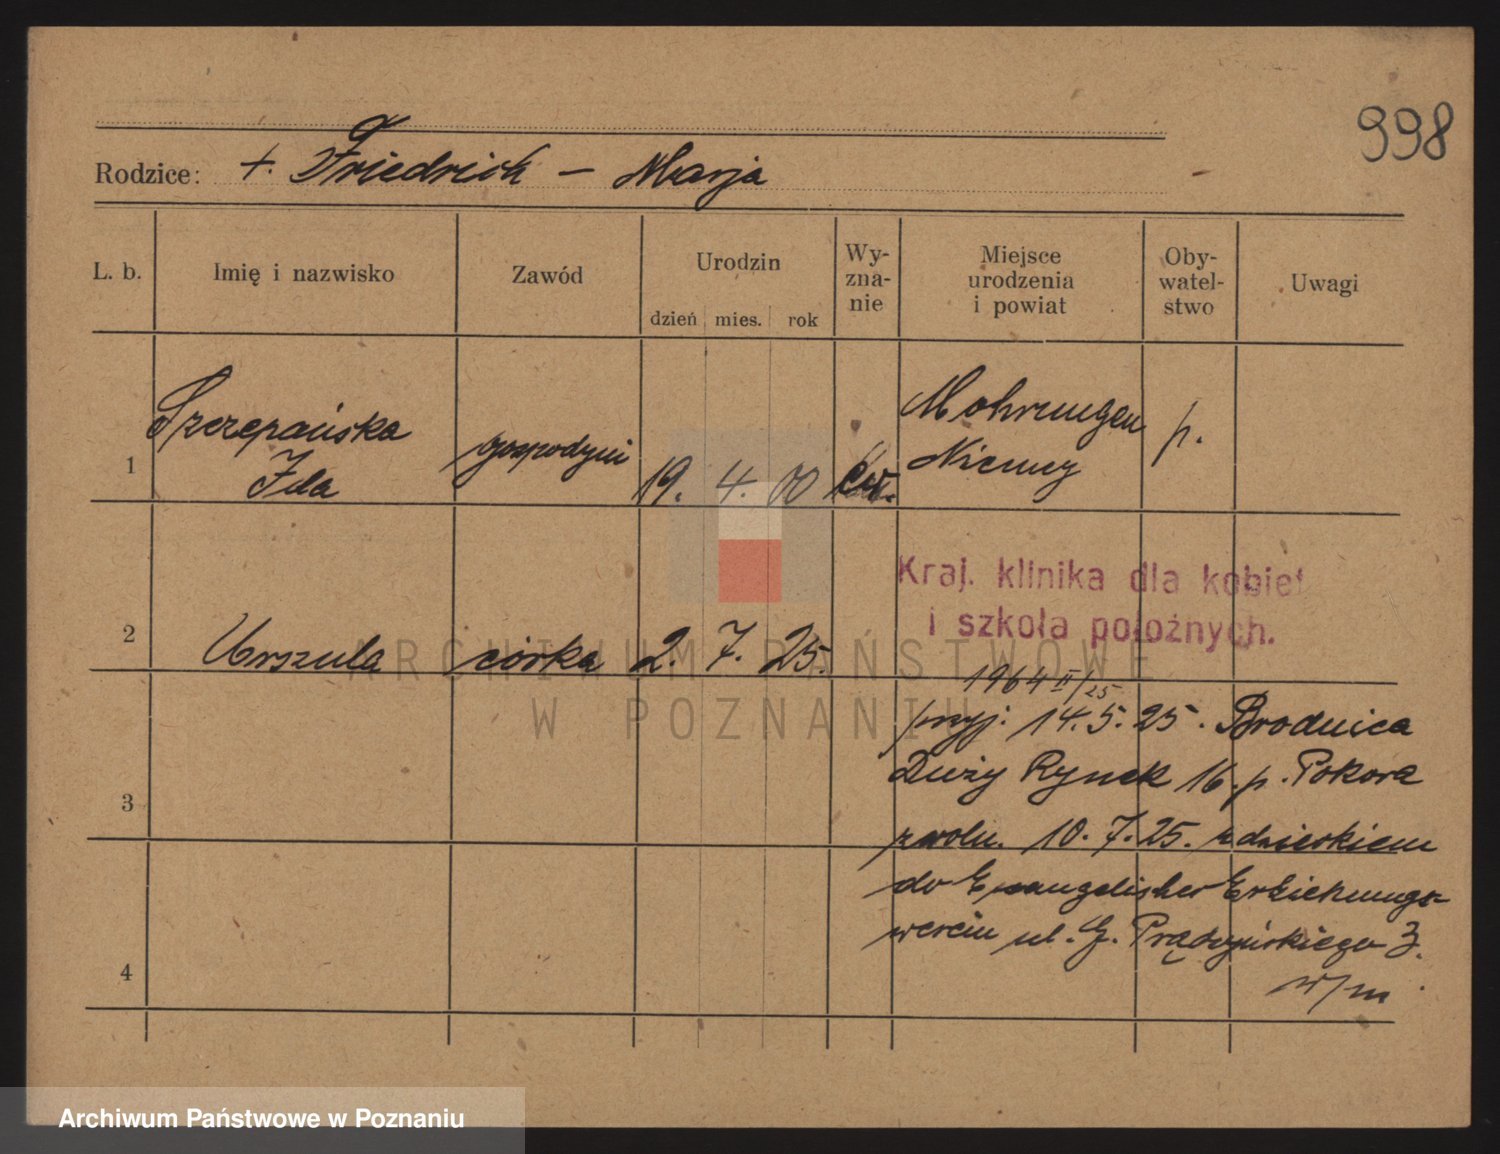 998
Rodzice: +. Friedrich – Marja
L. b.
Imię i nazwisko
Zawód
Urodzin
dzień mies. rok
Wy-
zna-
nie
Miejsce
urodzenia
i powiat
Oby-
watel-
stwo
Uwagi
1 Szczepańska Ida gospodyni 19. 4. 00 Ew. Mohrungen Niemcy p.
Kraj. klinika dla kobiet
i szkoła położnych.
2 Urszula córka 2. 7. 25.
1964 II/25
przyj: 14.5.25. Brodnica
Duży Rynek 16. p. Pokora
3
zwoln. 10.7.25. z dzieckiem
do Evangelisher Erziehungs-
verein ul. G. Prądzyńskiego 3.
4
w/m
ARCHIWUM PAŃSTWOWE
W POZNANIU
Archiwum Państwowe w Poznaniu